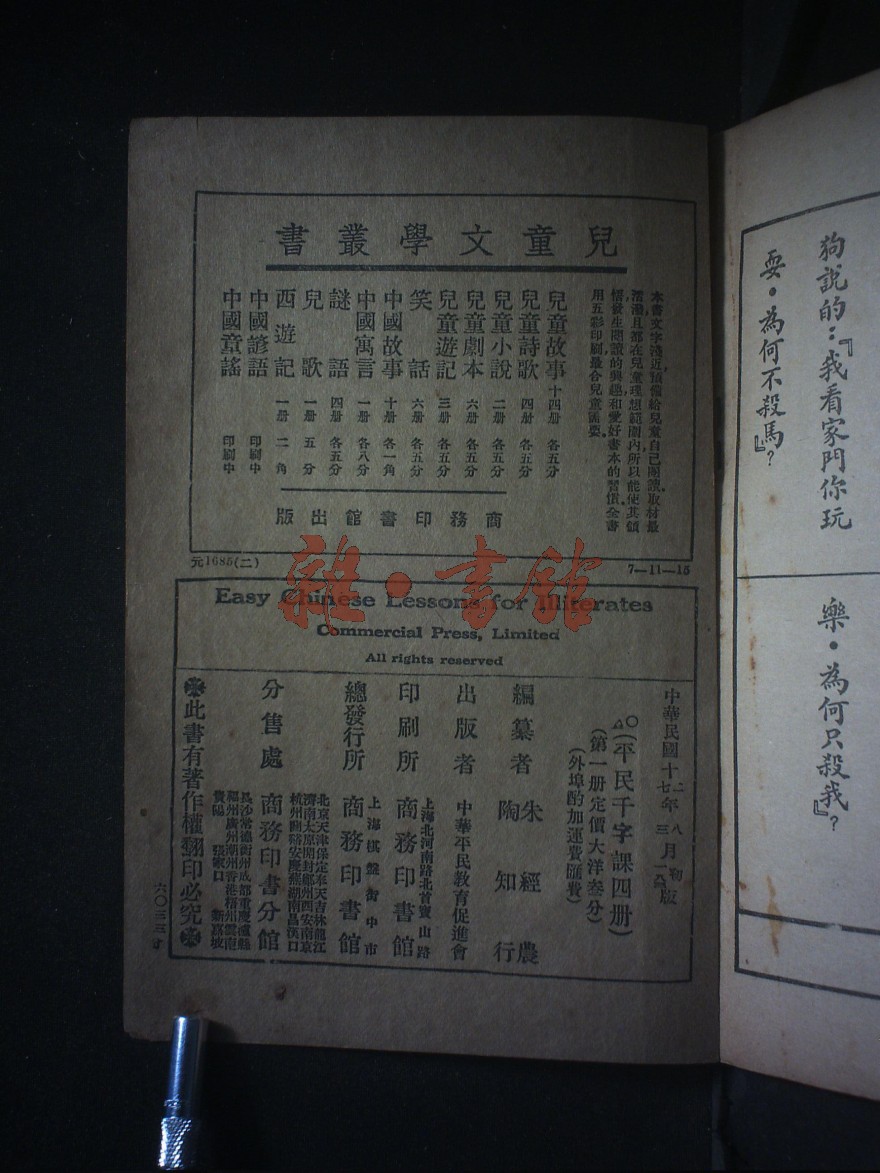 兒童文學叢書
本書文字淺近預備給兒童自己閱讀取材最
濡滿且都在兒童理想範圍內所以能使其領
悟發生閱讀的興趣和愛好書本的習慣全書
用五彩印刷最合兒童需要
兒童故事 十四册 各五分
兒童詩歌 四册 各五分
兒童小說 二册 各五分
兒童劇本 六册 各五分
兒童遊記 三册 各五分
笑話 六册 各五分
中國故事 十册 各一角
中國寓言 一册 各八分
謎語 四册 各五分
兒歌 一册 五分
西遊記 一册 二角
中國諺語 印刷中
中國童謠 印刷中
商務印書館出版
元1685(二)
7—11—15
雜·書館
Easy Chinese Lessons for Illiterates
Commercial Press, Limited
All rights reserved
中華民國十二年八月初版
(平民千字課四册)
(第一册定價大洋叁分)
(外埠酌加運費匯費)
編纂者 朱經農 陶知行
出版者 中華平民教育促進會
印刷所 上海北河南路北首寶山路 商務印書館
總發行所 上海棋盤街中市 商務印書館
分售處 商務印書分館
北京天津保定奉天吉林龍江
濟南太原開封鄭州西安南京
杭州蘭谿安慶蕪湖南昌漢口
長沙常德衡州成都重慶瀘縣
福州廣州潮州香港梧州雲南
貴陽 張家口 新嘉坡
此書有著作權翻印必究
六〇三三分
狗說的：『我看家門你玩
耍·為何不殺馬？』
樂·為何只殺我？』